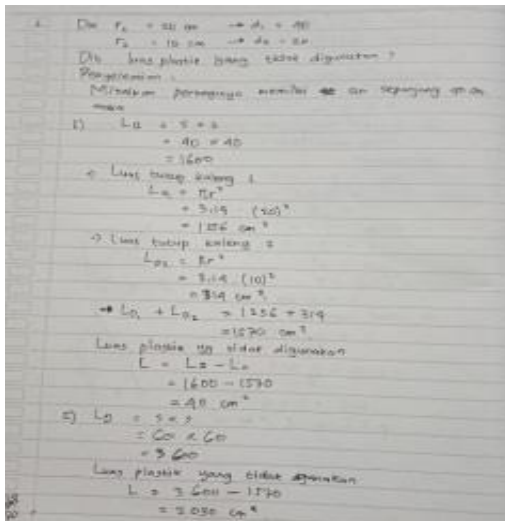 Dik r₁ = 20 cm → d₁ = 40
r₂ = 10 cm → d₂ = 20
Dit luas plastik yang tidak digunakan ?
Penyelesaian :
Misalkan persegi memiliki sepanjang
maka
1) L□ = s × s
= 40 × 40
= 1600
→ Luas tutup kaleng 1
L = πr²
= 3,14 (20)²
= 1256 cm²
→ Luas tutup kaleng 2
L○₂ = πr²
= 3,14 (10)²
= 314 cm²
→ L○₁ + L○₂ = 1256 + 314
= 1570 cm²
Luas plastik yg tidak digunakan
L = L□ - L○
= 1600 - 1570
= 40 cm²
2) L□ = s × s
= 60 × 60
= 3600
Luas plastik yang tidak digunakan
L = 3600 - 1570
= 2030 cm²